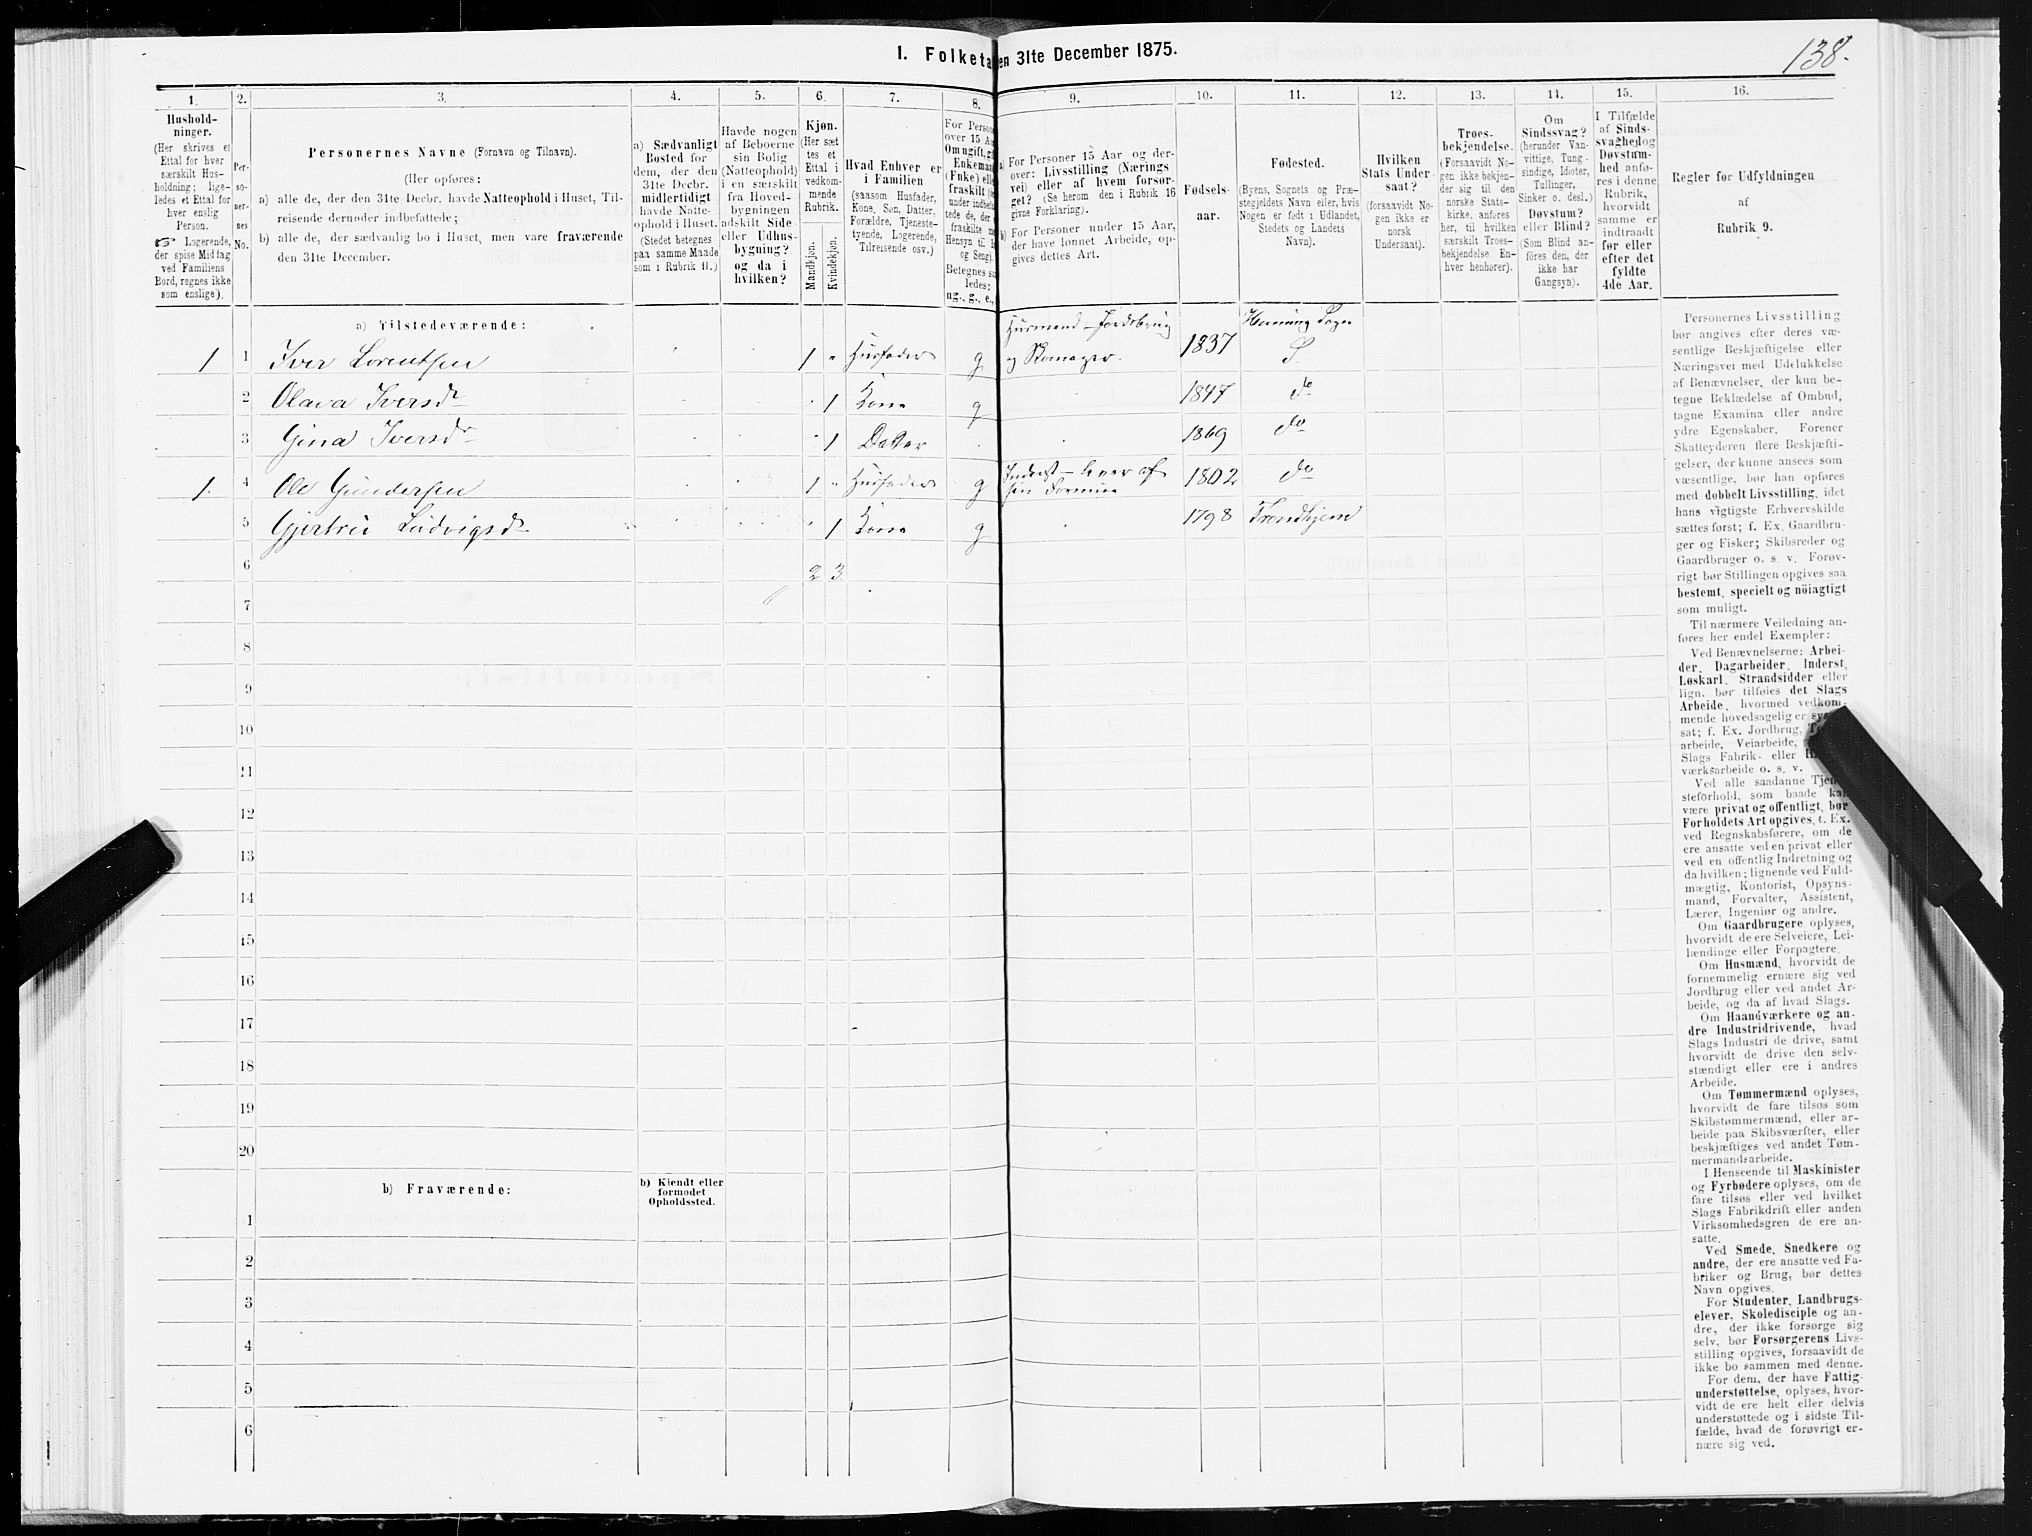 138.
I. Folketa
en 31te December 1875.
1.
2.
3.
4.
5.
6.
7.
8.
9.
10.
11.
12.
13.
14.
15.
16.
Hushold-
ninger.
(Her skrives et
Ettal for hver
særskilt Hus-
holdning; lige-
ledes et Ettal for
hver enslig
Person.
☞ Logerende,
der spise Middag
ved Familiens
Bord, regnes ikke
som enslige).
Per-
so-
ner-
nes
No.
Personernes Navne (Fornavn og Tilnavn).
(Her opføres:
a) alle de, der den 31te Decbr. havde Natteophold i Huset, Til-
reisende derunder indbefattede;
b) alle de, der sædvanlig bo i Huset, men vare fraværende
den 31te December.
a) Sædvanligt
Bosted for
dem, der den
31te Decbr.
midlertidigt
havde Natte-
ophold i Huset.
(Stedet betegnes
paa samme Maade
som i Rubrik 11.)
Havde nogen
af Beboerne
sin Bolig
(Natteophold)
i en særskilt
fra Hoved-
bygningen
adskilt Side-
eller Udhus-
bygning?
og da i
hvilken?
Kjøn.
(Her sæt
tes et
Ettal i
vedkom-
mende
Rubrik.
Mandkjøn.
Kvindekjøn.
Hvad Enhver er
i Familien
(saasom Husfader,
Kone, Søn, Datter,
Forældre, Tjeneste-
tyende, Logerende,
Tilreisende osv.)
For Person
over 15 Aa
Om ugift, gi
Enkeman
(Enke) elle
fraskilt (
under indbefat
tede de, der e
fraskilte m
Hensyn til B
og Seng).
Betegnes saa
ledes:
ug., g., e.,
a) For Personer 15 Aar og der-
over: Livsstilling (Nærings
vei) eller af hvem forsør-
get? (Se herom den i Rubrik 16
givne Forklaring).
b) For Personer under 15 Aar,
der have lønnet Arbeide, op-
gives dettes Art.
Fødsels-
aar.
Fødested.
(Byens, Sognets og Præ-
stegjeldets Navn eller, hvis
Nogen er født i Udlandet,
Stedets og Landets
Navn).
Hvilken
Stats Under-
saat?
(forsaavidt No-
gen ikke er
norsk
Undersaat).
Troes-
bekjendelse.
(Forsaavidt No-
gen ikke bekjen-
der sig til den
norske Stats-
kirke, anføres
her, til hvilken
særskilt Troes-
bekjendelse En-
hver henhører).
Om
Sindssvag?
(herunder Van-
vittige, Tung-
sindige, Idioter,
Tullinger,
Sinker o. desl.)
Døvstum?
eller Blind?
(Som Blind an-
føres den, der
ikke har
Gangsyn).
I Tilfælde
af Sinds-
svaghed og
Døvstum-
hed anfø-
res i denne
Rubrik,
hvorvidt
samme er
indtraadt
før eller
efter det
fyldte
4de Aar.
Regler for Udfyldningen
af
Rubrik 9.
a) Tilstedeværende:
1 1 Iver Lorentsen 1 " Husfader g Husmand – Jordbrug og Skomager. 1837 Henning Sogn
2 Olava Iversdr 1 Kone g 1847 do
3 Gina Iversdr 1 Datter 1869 do
1. 4 Ole Gundersen 1 " Husfader g Inderst – lever af sin Formue 1802 do
5 Gjertrud Ludvigsdr 1 Kone g 1798 Trondhjem
6 2 3
7
8
9
10
11
12
13
14
15
16
17
18
19
20
b) Fraværende:
b) Kjendt eller
formodet
Opholdssted.
1
2
3
4
5
6
Personernes Livsstilling
bør angives efter deres væ-
sentlige Beskjæftigelse eller
Næringsvei med Udelukkelse
af Benævnelser, der kun be-
tegne Beklædelse af Ombud,
tagne Examina eller andre
ydre Egenskaber. Forener
Skatteyderen flere Beskjæfti-
gelser, der kunne ansees som
væsentlige, bør han opføres
med dobbelt Livsstilling, idet
hans vigtigste Erhvervskilde
sættes først; f. Ex. Gaardbru-
ger og Fisker; Skibsreder og
Gaardbruger o. s. v. Forøv-
rigt bør Stillingen opgives saa
bestemt, specielt og nöiagtigt
som muligt.
Til nærmere Veiledning an-
føres her endel Exempler:
Ved Benævnelserne: Arbei-
der, Dagarbeider, Inderst,
Løskarl, Strandsidder eller
lign. bør tilføies det Slags
Arbeide, hvormed vedkom-
mende hovedsagelig er sys
sat; f. Ex. Jordbrug,
arbeide, Veiarbeide,
Slags Fabrik- eller
værksarbeide o. s. v.
Ved alle saadanne Tjen
steforhold, som baade kan
være privat og offentligt, bør
Forholdets Art opgives, t. Ex.
ved Regnskabsførere, om de
ere ansatte ved en privat eller
ved en offentlig Indretning og
da hvilken; lignende ved Fuld-
mægtig, Kontorist, Opsyns-
mand, Forvalter, Assistent,
Lærer, Ingeniør og andre.
Om Gaardbrugere oplyses,
hvorvidt de ere Selveiere, Lei-
lændinge eller Forpagtere.
Om Husmænd, hvorvidt de
fornemmelig ernære sig ved
Jordbrug eller ved andet Ar-
beide, og da af hvad Slags.
Om Haandværkere og an-
dre Industridrivende, hvad
Slags Industri de drive, samt
hvorvidt de drive den selv-
stændigt eller ere i andres
Arbeide.
Om Tømmermænd oplyses,
hvorvidt de fare tilsøs som
Skibstømmermænd, eller ar-
beide paa Skibsværfter, eller
beskjæftiges ved andet Tøm-
mermandsarbeide.
I Henseende til Maskinister
og Fyrbødere oplyses, om de
fare tilsøs eller ved hvilket
Slags Fabrikdrift eller anden
Virksomhedsgren de ere an-
satte.
Ved Smede, Snedkere og
andre, der ere ansatte ved Fa-
briker og Brug, bør dettes
Navn opgives.
For Studenter, Landbrugs-
elever, Skoledisciple og an-
dre, der ikke forsørge sig
selv, bør Forsørgerens Livs-
stilling opgives, forsaavidt de
ikke bo sammen med denne.
For dem, der have Fattig-
understøttelse, oplyses, hvor-
vidt de ere helt eller delvis
understøttede og i sidste Til-
fælde, hvad de forøvrigt er-
nære sig ved.